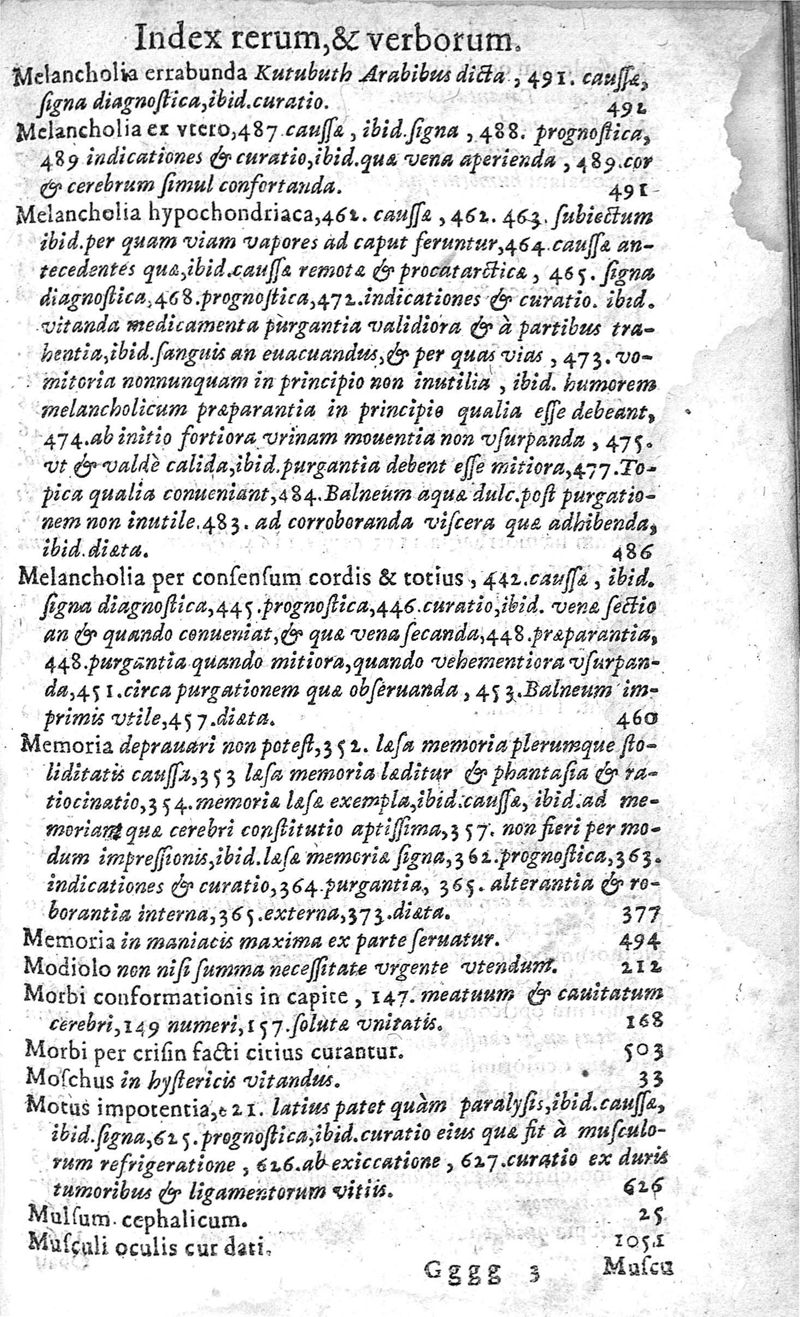 Index rerum, & verborum.
Melancholia errabunda Kutubuth Arabibus dicta, 491. caussæ,
signa diagnostica, ibid. curatio. 492
Melancholia ex vtero, 487 caussæ, ibid. signa, 488. prognostica,
489 indicationes & curatio, ibid. quæ vena aperienda, 489. cor
& cerebrum simul confortanda. 491
Melancholia hypochondriaca, 462. caussæ, 462. 463. subiectum
ibid. per quam viam vapores ad caput feruntur, 464. caussæ an-
tecedentes quæ, ibid. caussæ remotæ & procatarcticæ, 465. signa
diagnostica, 468. prognostica, 472. indicationes & curatio. ibid.
vitanda medicamenta purgantia validiora & à partibus tra-
hentia, ibid. sanguis an euacuandus, & per quas vias, 473. vo-
mitoria nonnunquam in principio non inutilia, ibid. humorem
melancholicum præparantia in principio qualia esse debeant,
474. ab initio fortiora vrinam mouentia non vsurpanda, 475.
vt & valdè calida, ibid. purgantia debent esse mitiora, 477. To-
pica qualia conueniant, 484. Balneum aquæ dulc. post purgatio-
nem non inutile. 483. ad corroboranda viscera quæ adhibenda,
ibid. diæta. 486
Melancholia per consensum cordis & totius, 442. caussæ, ibid.
signa diagnostica, 445. prognostica, 446. curatio, ibid. venæ sectio
an & quando conueniat, & quæ vena secanda, 448. præparantia,
448. purgantia quando mitiora, quando vehementiora vsurpan-
da, 451. circa purgationem quæ obseruanda, 453. Balneum im-
primis vtile, 457. diæta. 460
Memoria deprauari non potest, 352. læsa memoria plerumque sto-
liditatis caussa, 353 læsa memoria læditur & phantasia & ra-
tiocinatio, 354. memoriæ læsæ exempla, ibid. caussæ, ibid. ad me-
moriam quæ cerebri constitutio aptissima, 357. non fieri per mo-
dum impressionis, ibid. læsæ memoriæ signa, 362. prognostica, 363.
indicationes & curatio, 364. purgantia, 365. alterantia & ro-
borantia interna, 365. externa, 373. diæta. 377
Memoria in maniacis maxima ex parte seruatur. 494
Modiolo non nisi summa necessitate vrgente vtendum. 212
Morbi conformationis in capite, 147. meatuum & cauitatum
cerebri, 149 numeri, 157. solutæ vnitatis. 168
Morbi per crisin facti citius curantur. 503
Moschus in hystericis vitandus. 33
Motus impotentia, 621. latius patet quàm paralysis, ibid. caussæ,
ibid. signa, 625. prognostica, ibid. curatio eius quæ fit à musculo-
rum refrigeratione, 626. ab exiccatione, 627. curatio ex duris
tumoribus & ligamentorum vitiis. 626
Mulsum cephalicum. 25
Musculi oculis cur dati. 1051
Gggg 3 Muscu